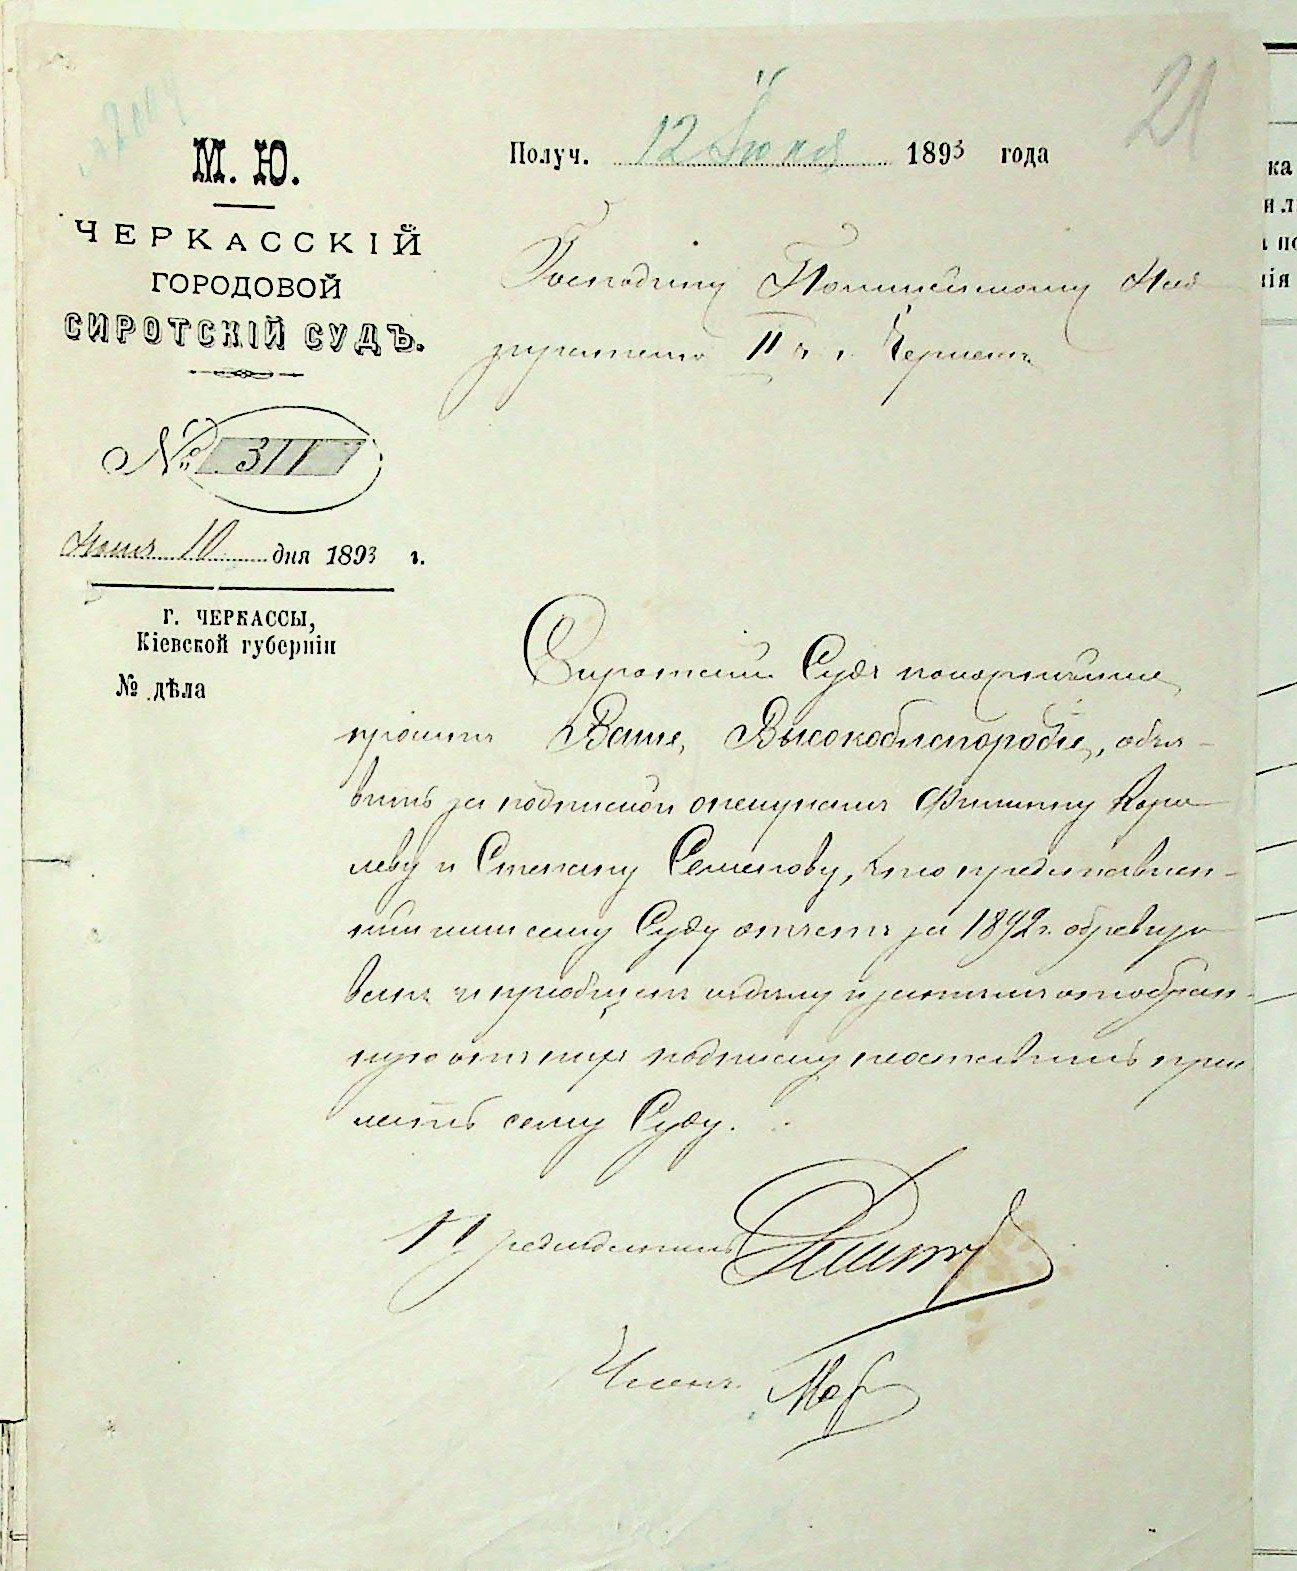 21
М. Ю.
ЧЕРКАССКІЙ
ГОРОДОВОЙ
СИРОТСКІЙ СУДЪ.
№ 311
Іюня 10 дня 1893 г.
Г. ЧЕРКАССЫ,
Кіевской губерніи
№ дѣла
Получ. 12 Іюня 1893 года
Господину Полицейскому Над
зирателю II ч. г. Черкасъ
Сиротскій Судъ покорнѣйше
проситъ Ваше Высокоблагородіе, объя-
вить за подпиской опекунамъ Филиппу
и Степану Семенову, что представлен-
ный ими сему Суду отчетъ за 1892 г. обревизо
ванъ и пріобщенъ къ дѣлу и затѣмъ отобран-
ную отъ нихъ подписку доставить
сему Суду.
Предсѣдатель
Членъ
ка
ил
ія